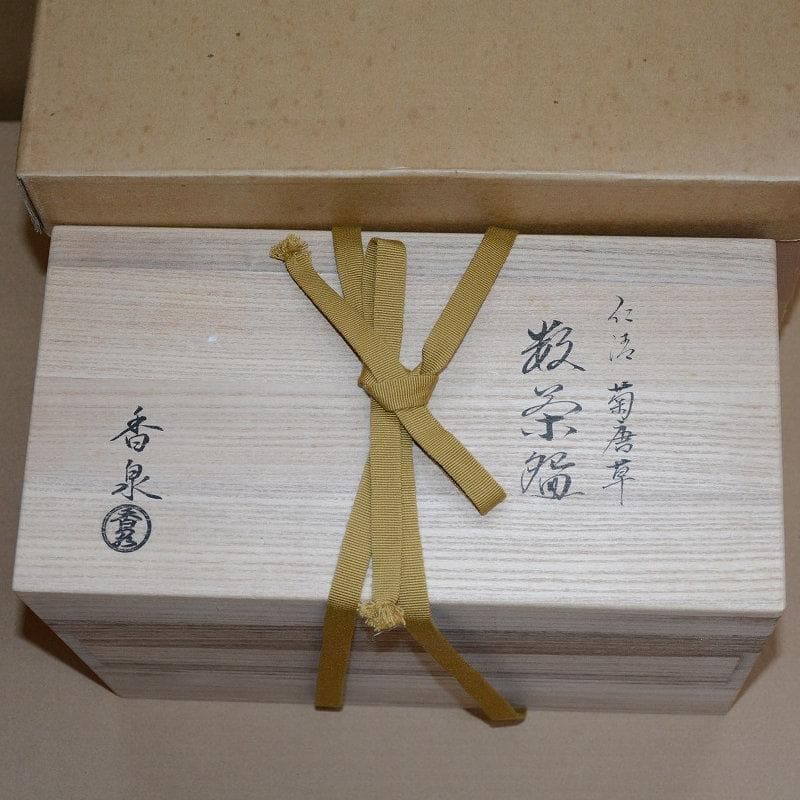 仁清 菊唐草
数茶碗
香泉